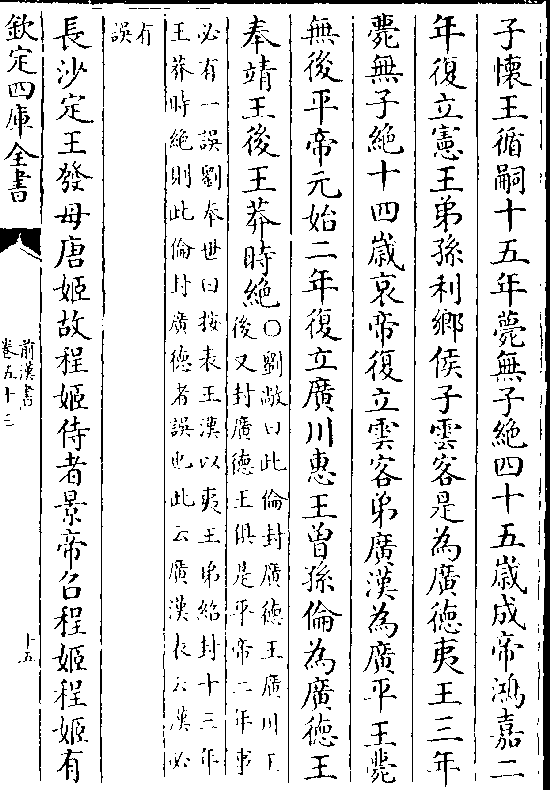 子懷王循嗣十五年薨無子絶四十五嵗成帝鴻嘉二
年復立憲王弟孫利鄉侯子雲客是為廣德夷王三年
薨無子絶十四嵗哀帝復立雲客弟廣漢為廣平王薨
無後平帝元始二年復立廣川惠王曽孫倫為廣德王
奉靖王後王莽時絶
○劉敞曰此倫封廣德王廣川王
後又封廣德王俱是平帝二年事
必有一誤劉奉世曰按表王漢以夷王弟紹封十三年
王莽時絶則此倫封廣德者誤也此云廣漢表云漢必
有
誤
長沙定王發母唐姬故程姬侍者景帝召程姬程姬有
欽定四庫全書
前漢書
卷五十三
十五